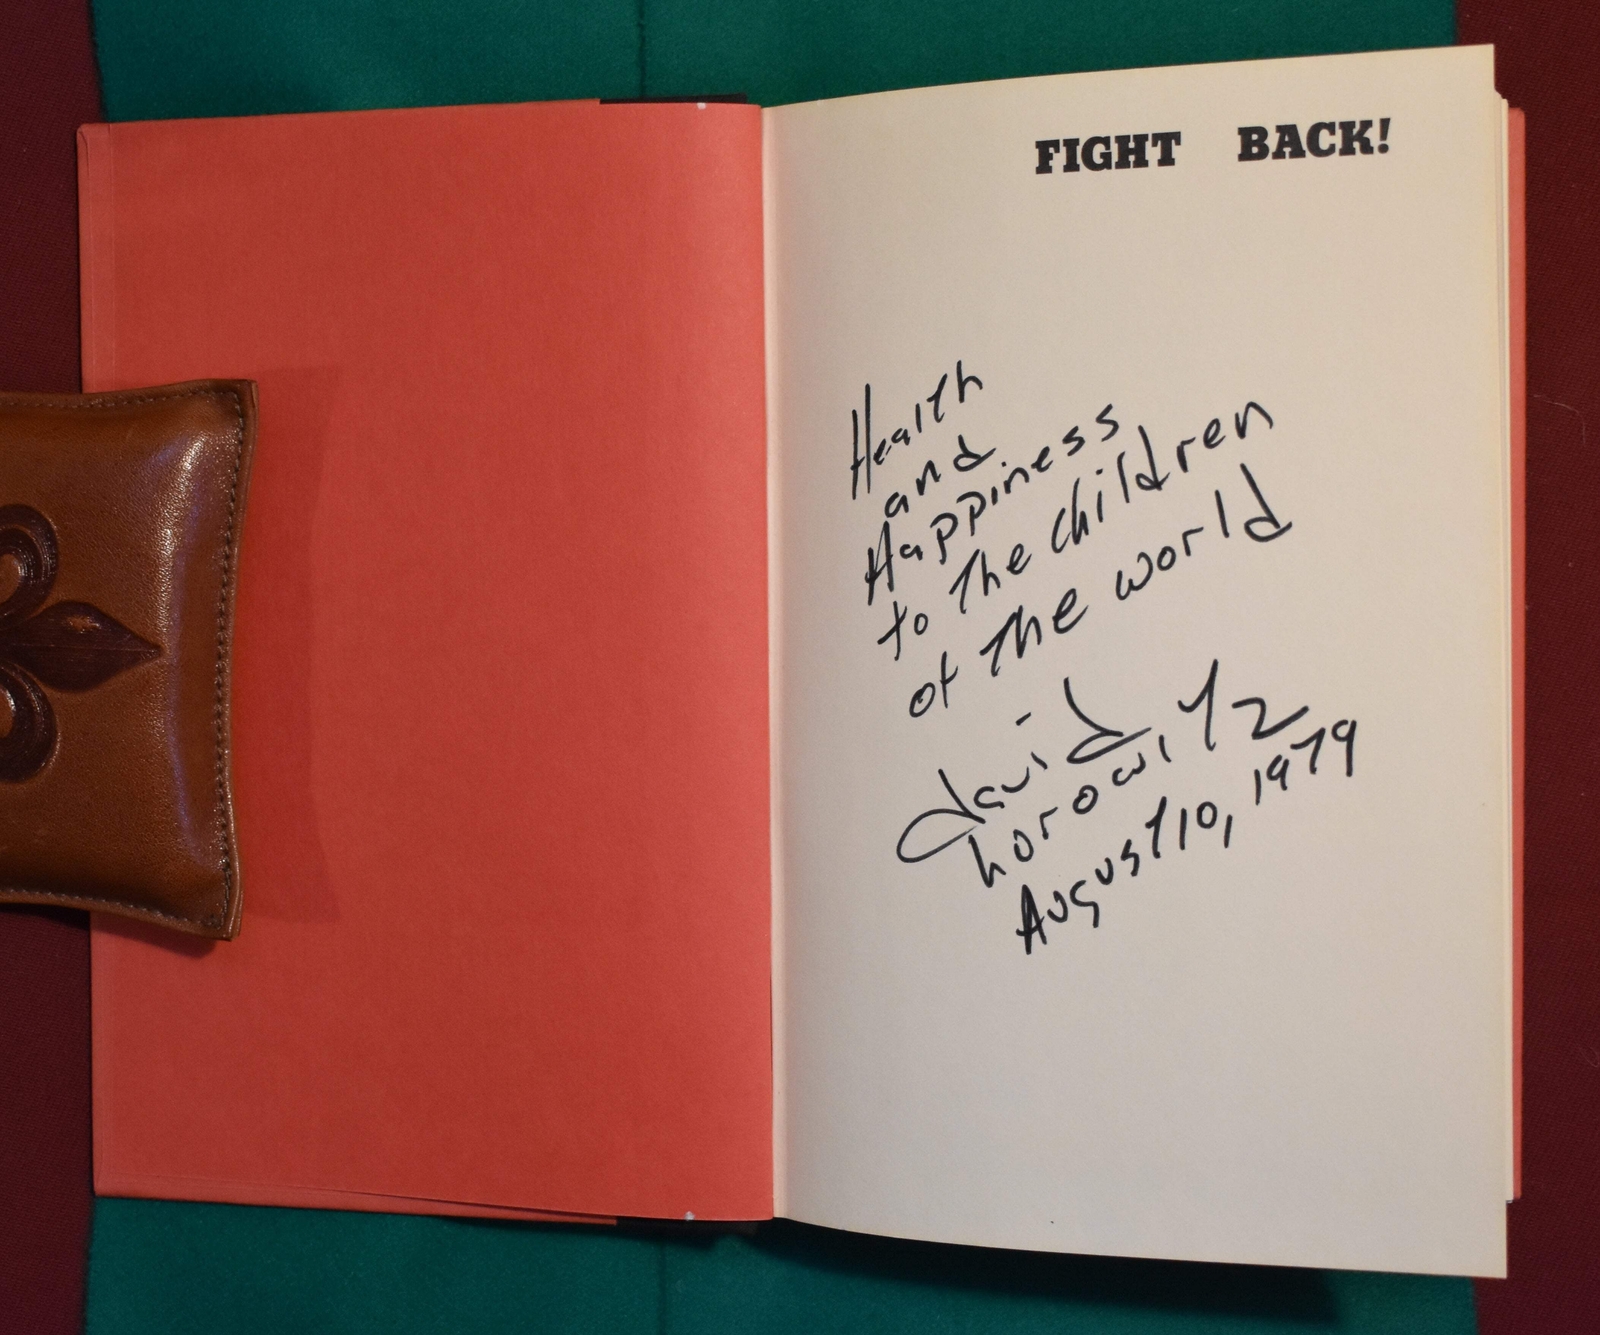 FIGHT BACK!
Health
and
Happiness
to the children
of the world
david
horowitz
August 10, 1979